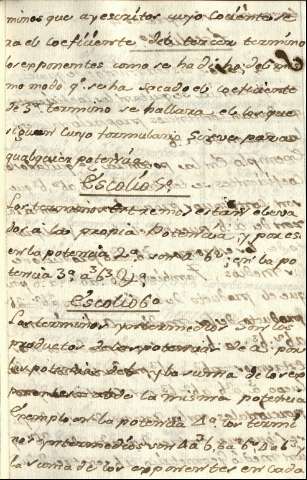 minos que ay escritos cuyo cociente se
ra el coeficiente del tercer termino
los exponentes como se ha dicho del mis
mo modo q.e se ha sacado el coeficiente
de 3er termino se hallara el de los que
siguen cuyo formulario sirve para
qualquier potencia.
Escolio 5o
Los terminos extremos estan eleva
dos a la propia Potencia y por eso
en la potencia 2a son a2 b2 en la po
tencia 3a a3 b3 &a
Escolio 6o
Los terminos yntermedios son los
productos de las potencias de a por
las potencias de b y la suma de los ex
ponentes es de la misma potencia
Exemplo en la potencia 4a los termi
nos yntermedios son 4a3b, 6a2b2, 4ab3,
la suma de los exponentes en cada